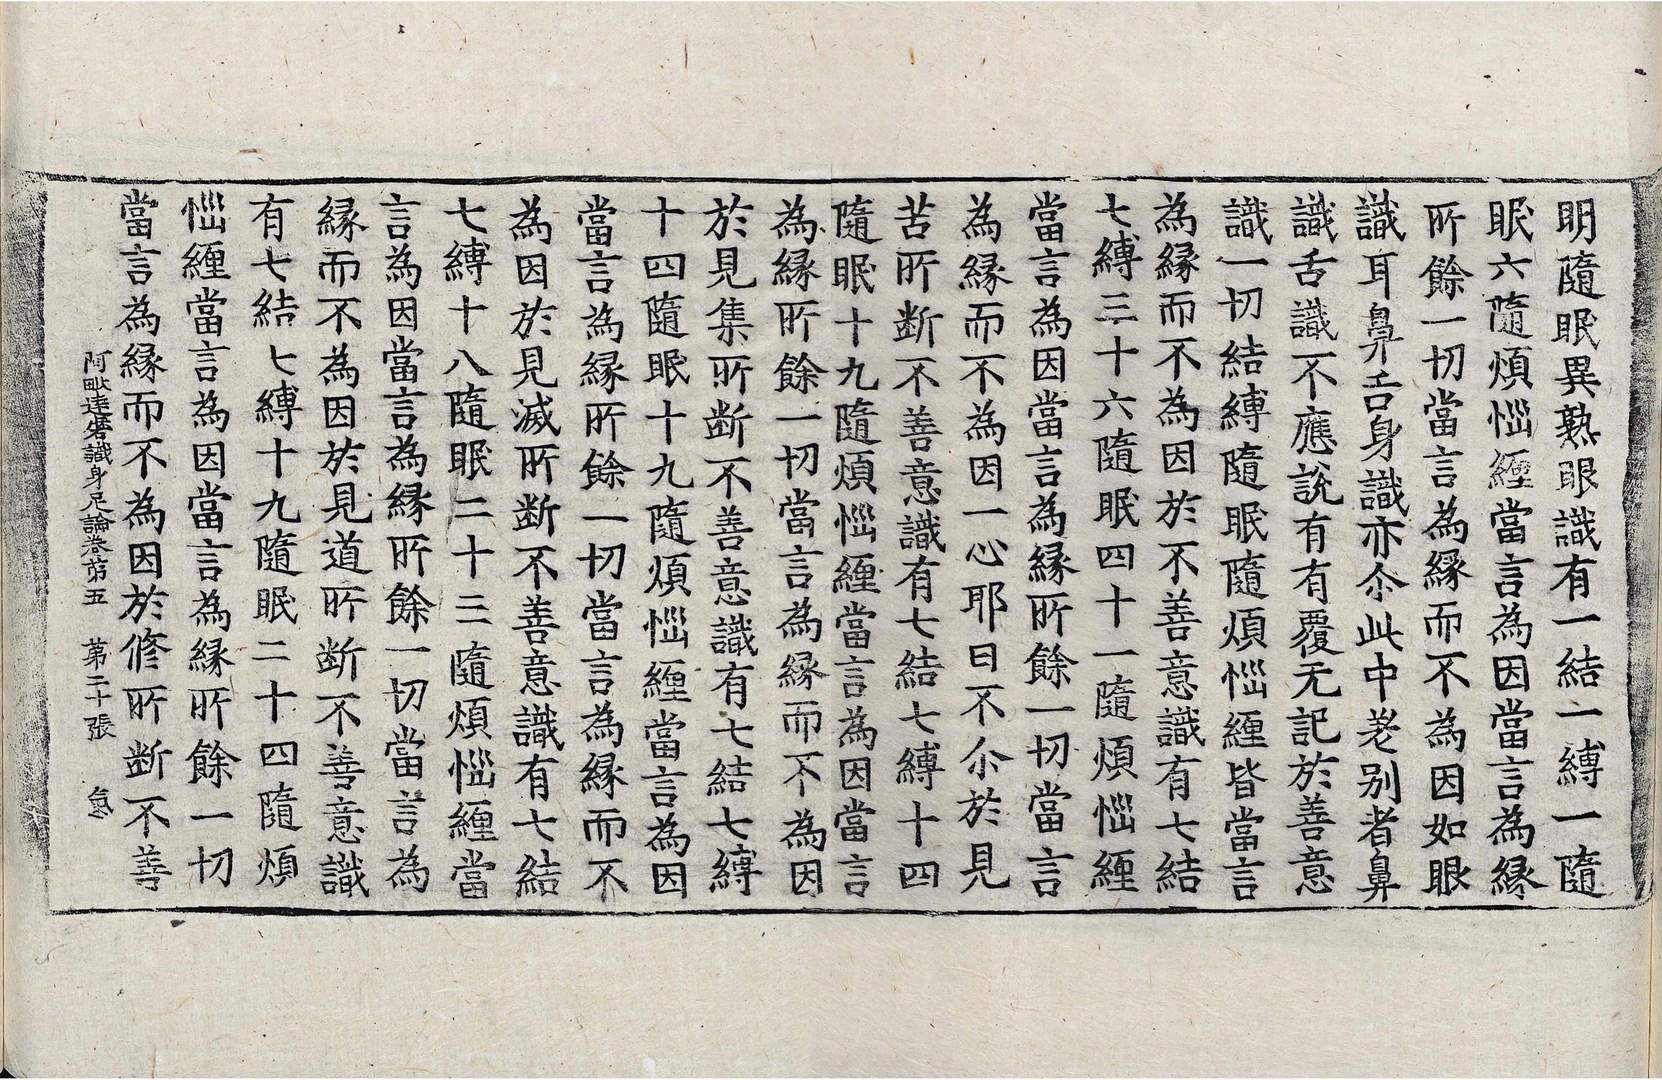 明隨眠異熟眼識有一結一縛一隨
眠六隨煩惱纏當言為因當言為緣
所餘一切當言為緣而不為因如眼
識耳鼻舌身識亦尒此中差別者鼻
識舌識不應說有有覆无記於善意
識一切結縛隨眠隨煩惱纏皆當言
為緣而不為因於不善意識有七結
七縛三十六隨眠四十一隨煩惱纏
當言為因當言為緣所餘一切當言
為緣而不為因一心耶曰不尒於見
苦所断不善意識有七結七縛十四
隨眠十九隨煩惱纏當言為因當言
為緣所餘一切當言為緣而不為因
於見集所断不善意識有七結七縛
十四隨眠十九隨煩惱纏當言為因
當言為緣所餘一切當言為緣而不
為因於見滅所断不善意識有七結
七縛十八隨眠二十三隨煩惱纏當
言為因當言為緣所餘一切當言為
緣而不為因於見道所断不善意識
有七結七縛十九隨眠二十四隨煩
惱纏當言為因當言為緣所餘一切
當言為緣而不為因於修所断不善
阿毗達磨識身足論卷第五 第二十張 氣